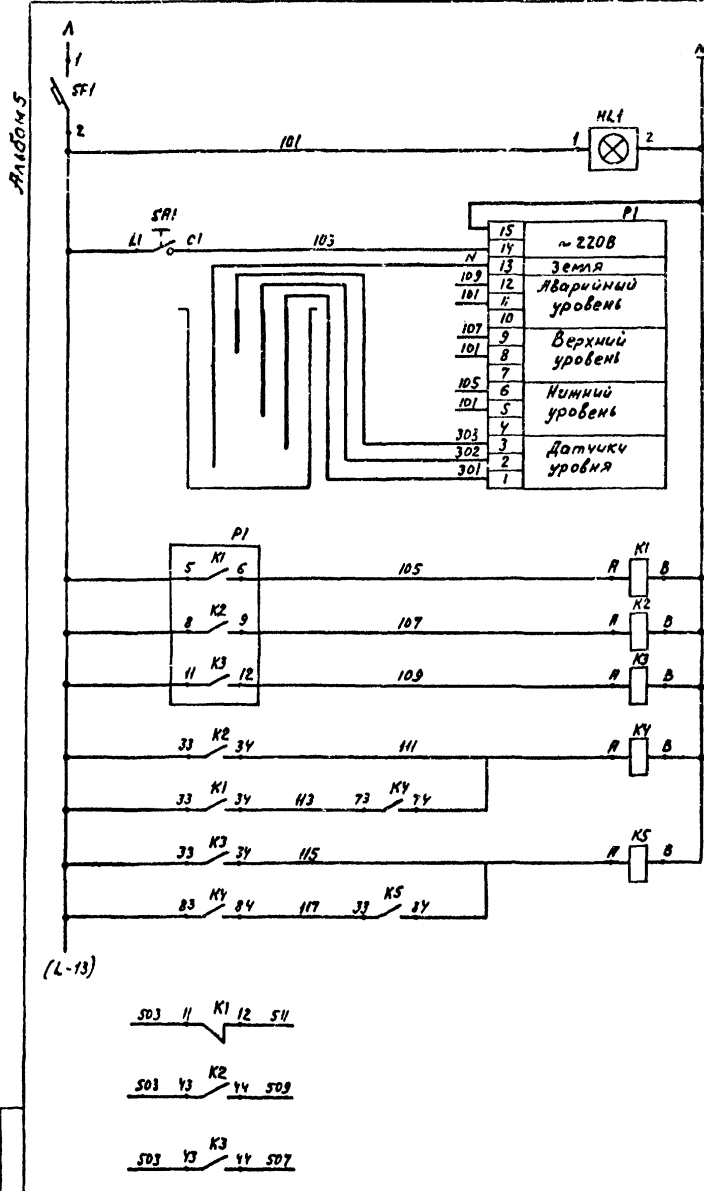 Альбом 5
Л
N
1
SF1
2
101
HL1
1 2
SA1
L1 C1
103
P1
15
14
~220В
N
13
Земля
109
12
Аварийный
101
11
уровень
10
107
9
Верхний
101
8
уровень
7
105
6
Нижний
101
5
уровень
4
303
3
Датчики
302
2
уровня
301
1
P1
5 K1 6 105 A K1 B
8 K2 9 107 A K2 B
11 K3 12 109 A K3 B
33 K2 34 111 A K4 B
33 K1 34 113 73 K4 74
33 K3 34 115 A K5 B
83 K4 84 117 33 K5 34
(L-13)
503 11 K1 12 511
503 43 K2 44 509
503 43 K3 44 507